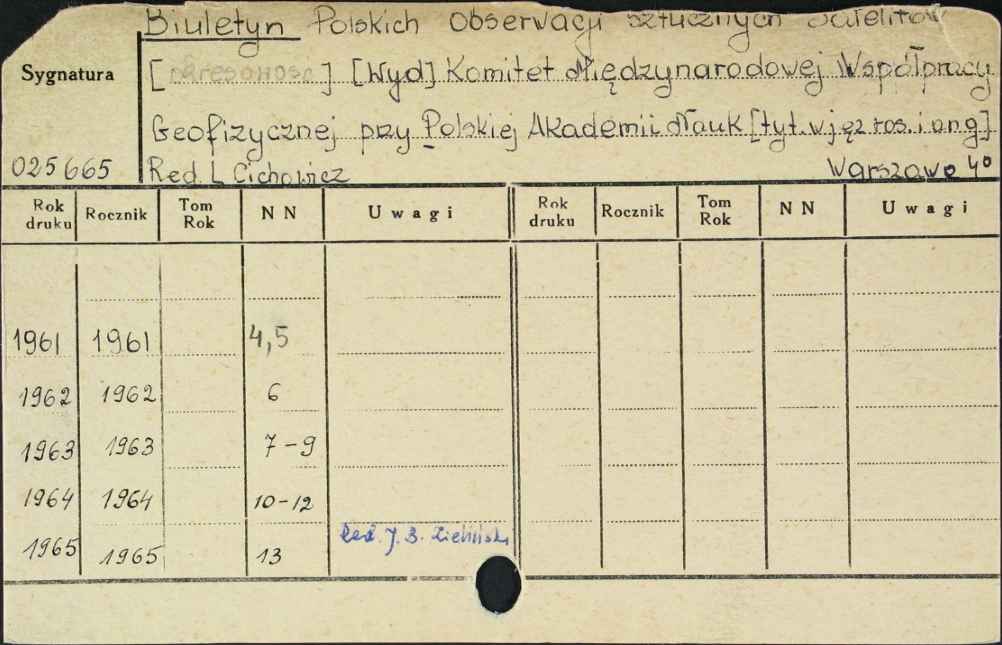 Biuletyn Polskich Obserwacji Sztucznych Satelitów
Sygnatura
[ ] [Wyd] Komitet Międzynarodowej Współpracy
Geofizycznej przy Polskiej Akademii Nauk [tyt. w jęz ros. i ang]
025665
Red. L Cichowicz Warszawa 4°
Rok druku Rocznik Tom Rok NN Uwagi Rok druku Rocznik Tom Rok NN Uwagi
1961 1961 4,5
1962 1962 6
1963 1963 7-9
1964 1964 10-12
1965 1965 13 Red. J. B. Zieliński